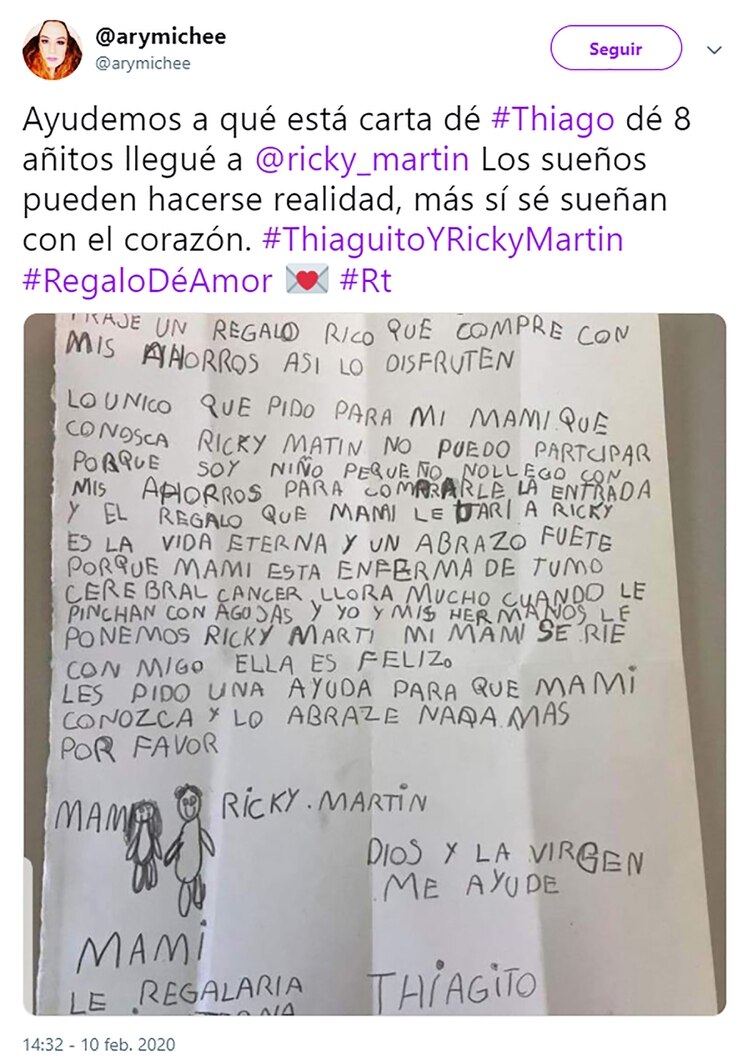 @arymichee
@arymichee
Seguir
Ayudemos a qué está carta dé #Thiago dé 8
añitos llegué a @ricky_martin Los sueños
pueden hacerse realidad, más sí sé sueñan
con el corazón. #ThiaguitoYRickyMartin
#RegaloDéAmor 💌 #Rt
TRAJE UN REGALO RICO QUE COMPRE CON
MIS AHORROS ASI LO DISFRUTEN
LO UNICO QUE PIDO PARA MI MAMI QUE
CONOSCA RICKY MATIN NO PUEDO PARTCIPAR
PORQUE SOY NIÑO PEQUEÑO NO LLEGO CON
MIS AHORROS PARA COMPRARLE LA ENTRADA
Y EL REGALO QUE MAMI LE DARI A RICKY
ES LA VIDA ETERNA Y UN ABRAZO FUETE
PORQUE MAMI ESTA ENFERMA DE TUMO
CEREBRAL CANCER LLORA MUCHO CUANDO LE
PINCHAN CON AGUJAS Y YO Y MIS HERMANOS LE
PONEMOS RICKY MARTI MI MAMI SE RIE
CON MIGO ELLA ES FELIZ.
LES PIDO UNA AYUDA PARA QUE MAMI
CONOZCA Y LO ABRAZE NADA MAS
POR FAVOR
MAMI RICKY. MARTIN
DIOS Y LA VIRGEN
ME AYUDE
MAMI
LE REGALARIA
THIAGITO
14:32 - 10 feb. 2020